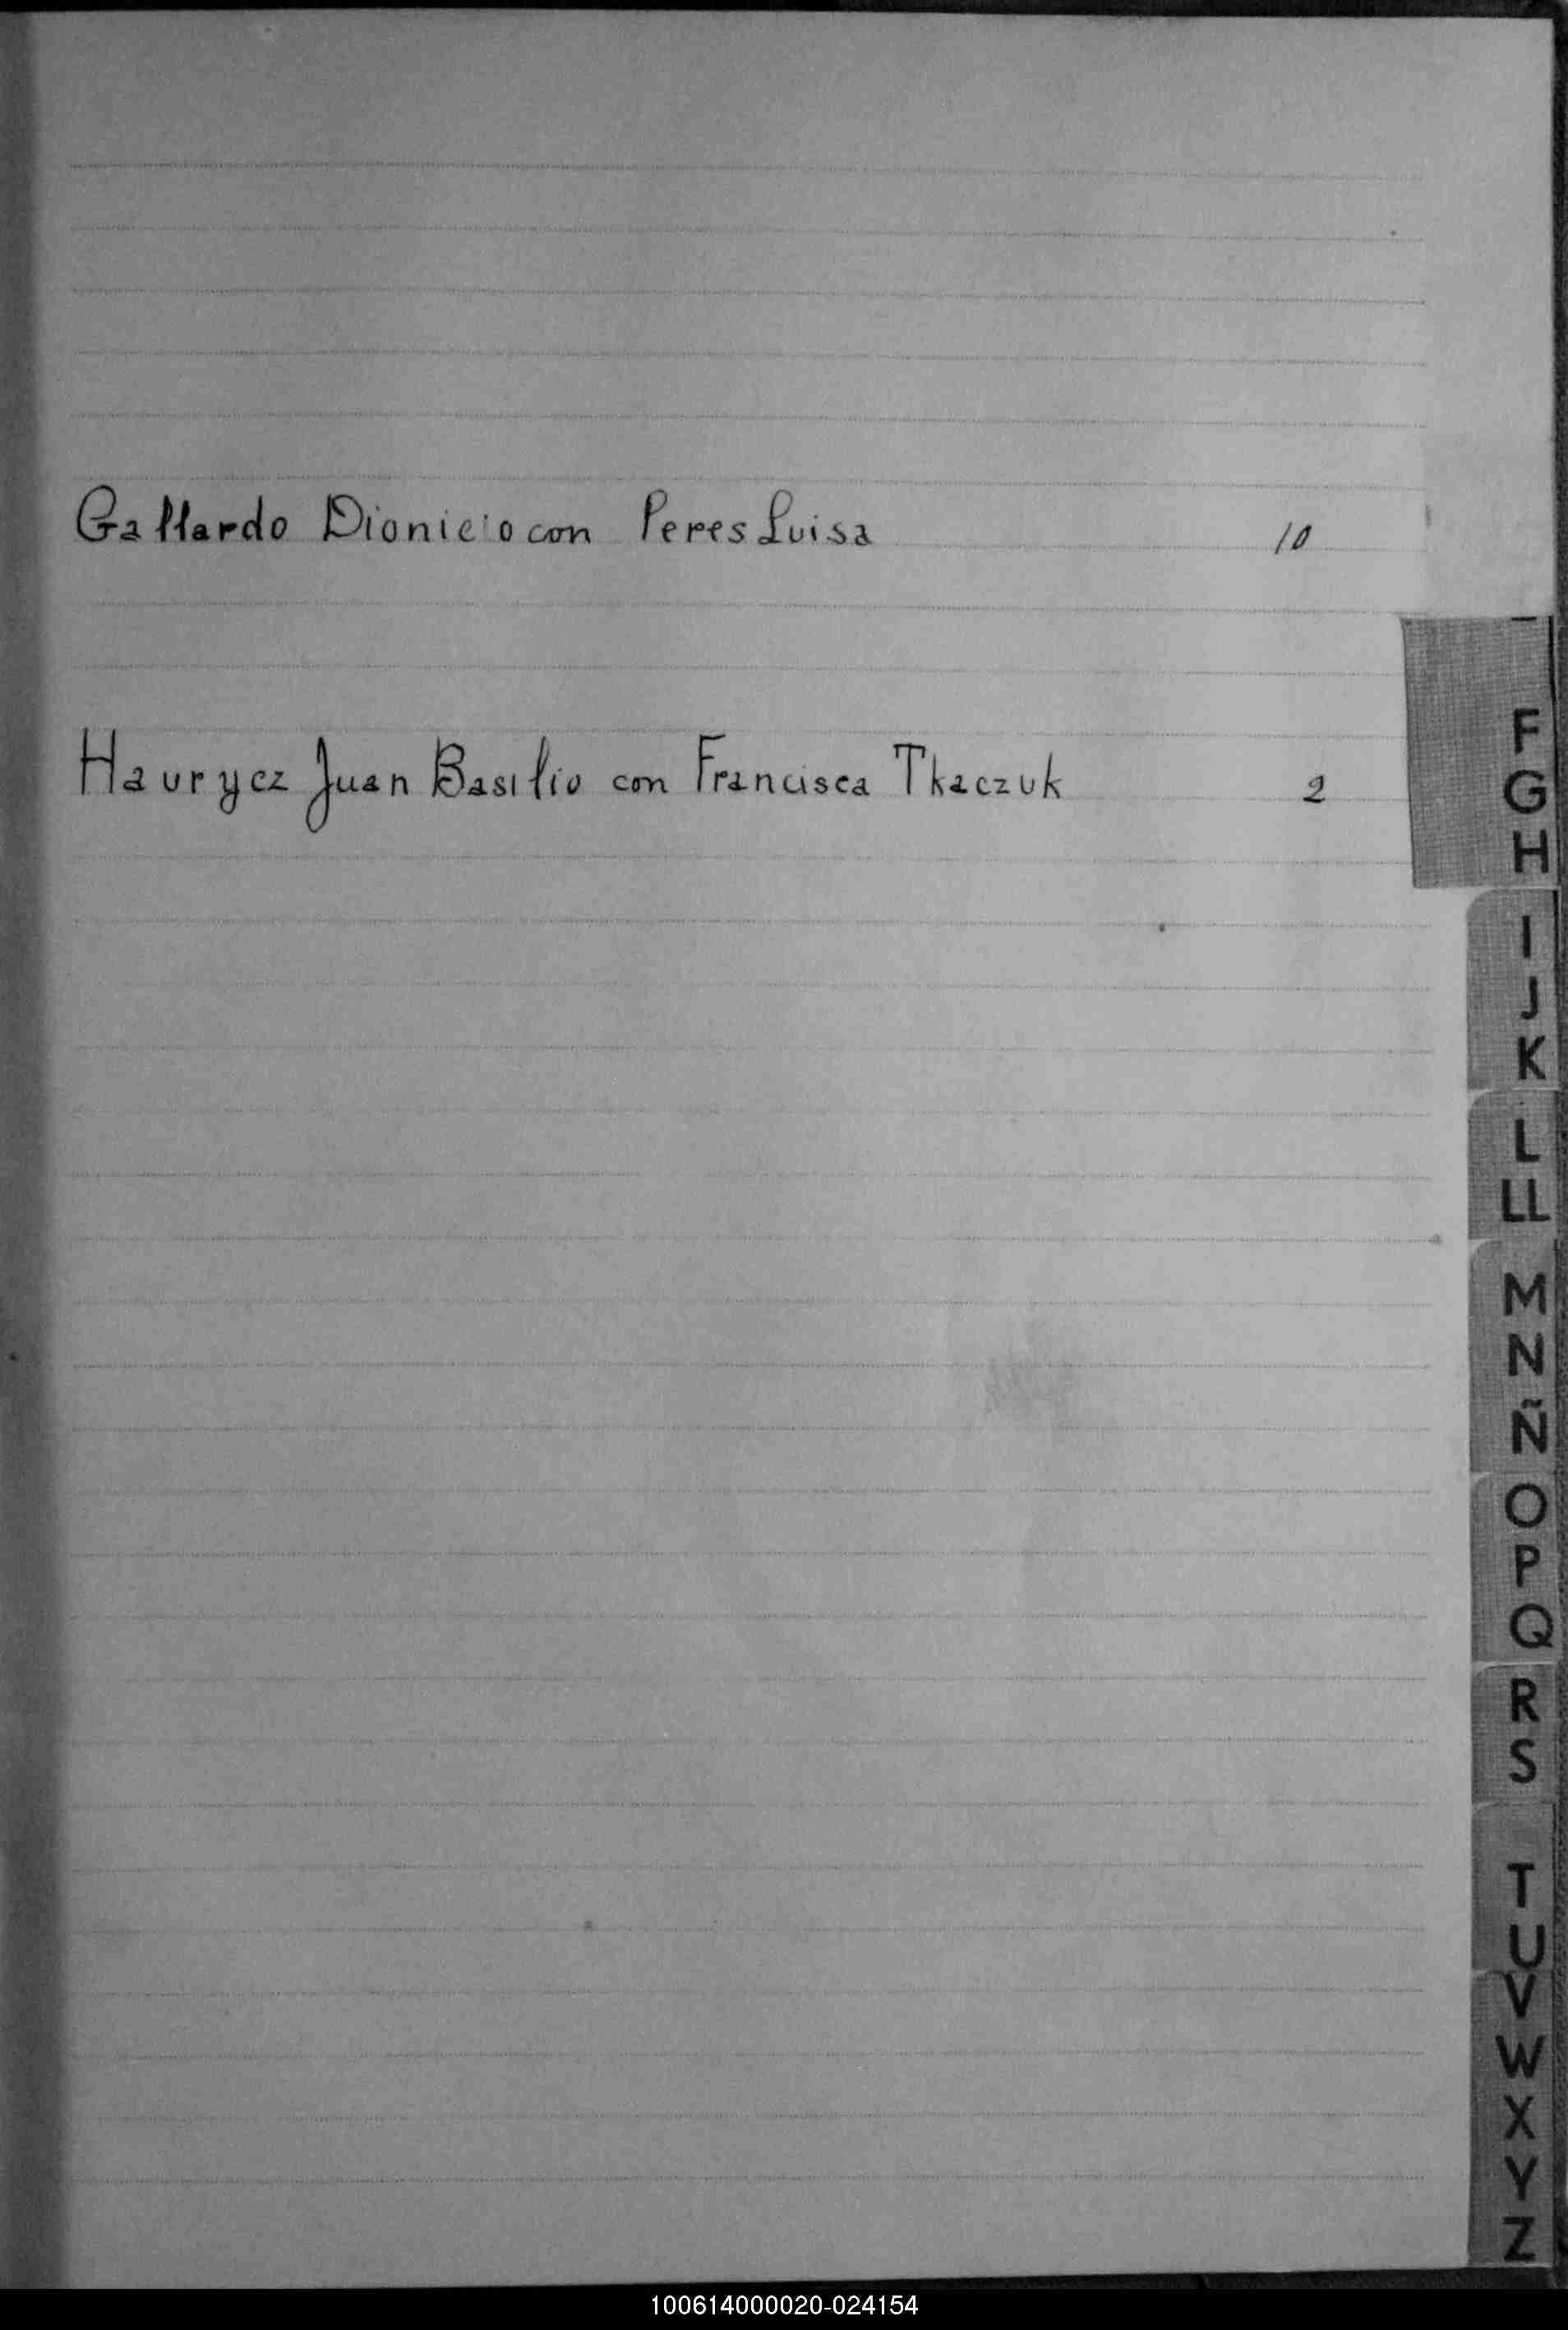 Gallardo Dionicio con Peres Luisa 10
F
G
Haurycz Juan Basilio con Francisca Tkaczuk 2
H
I
J
K
L
LL
M
N
Ñ
O
P
Q
R
S
T
U
V
W
X
Y
Z
100614000020-024154